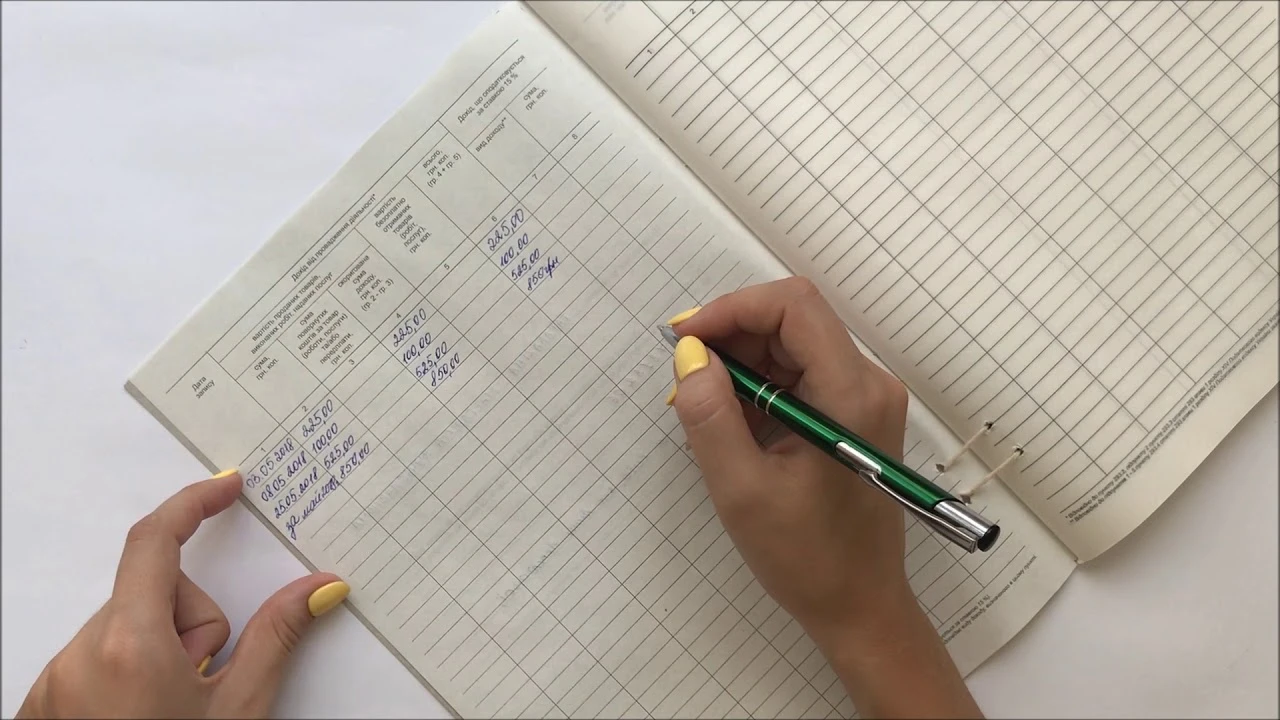 Дохід від провадження діяльності*
Дохід, що оподатковується
за ставкою 15 %
Дата
запису
вартість проданих товарів,
виконаних робіт, наданих послуг
сума,
грн. коп.
сума
повернутих
коштів за товар
(роботи, послуги)
та/або
передплати,
грн. коп.
скоригована
сума
доходу,
грн. коп.
(гр. 2 - гр. 3)
вартість
безоплатно
отриманих
товарів
(робіт,
послуг),
грн. коп.
всього,
грн. коп.
(гр. 4 + гр. 5)
вид доходу**
сума,
грн. коп.
1 2 3 4 5 6 7 8
06.05.2018 225,00 225,00 225,00
08.05.2018 100,00 100,00 100,00
25.05.2018 525,00 525,00 525,00
за май 850,00 850,00 850 грн
1 2